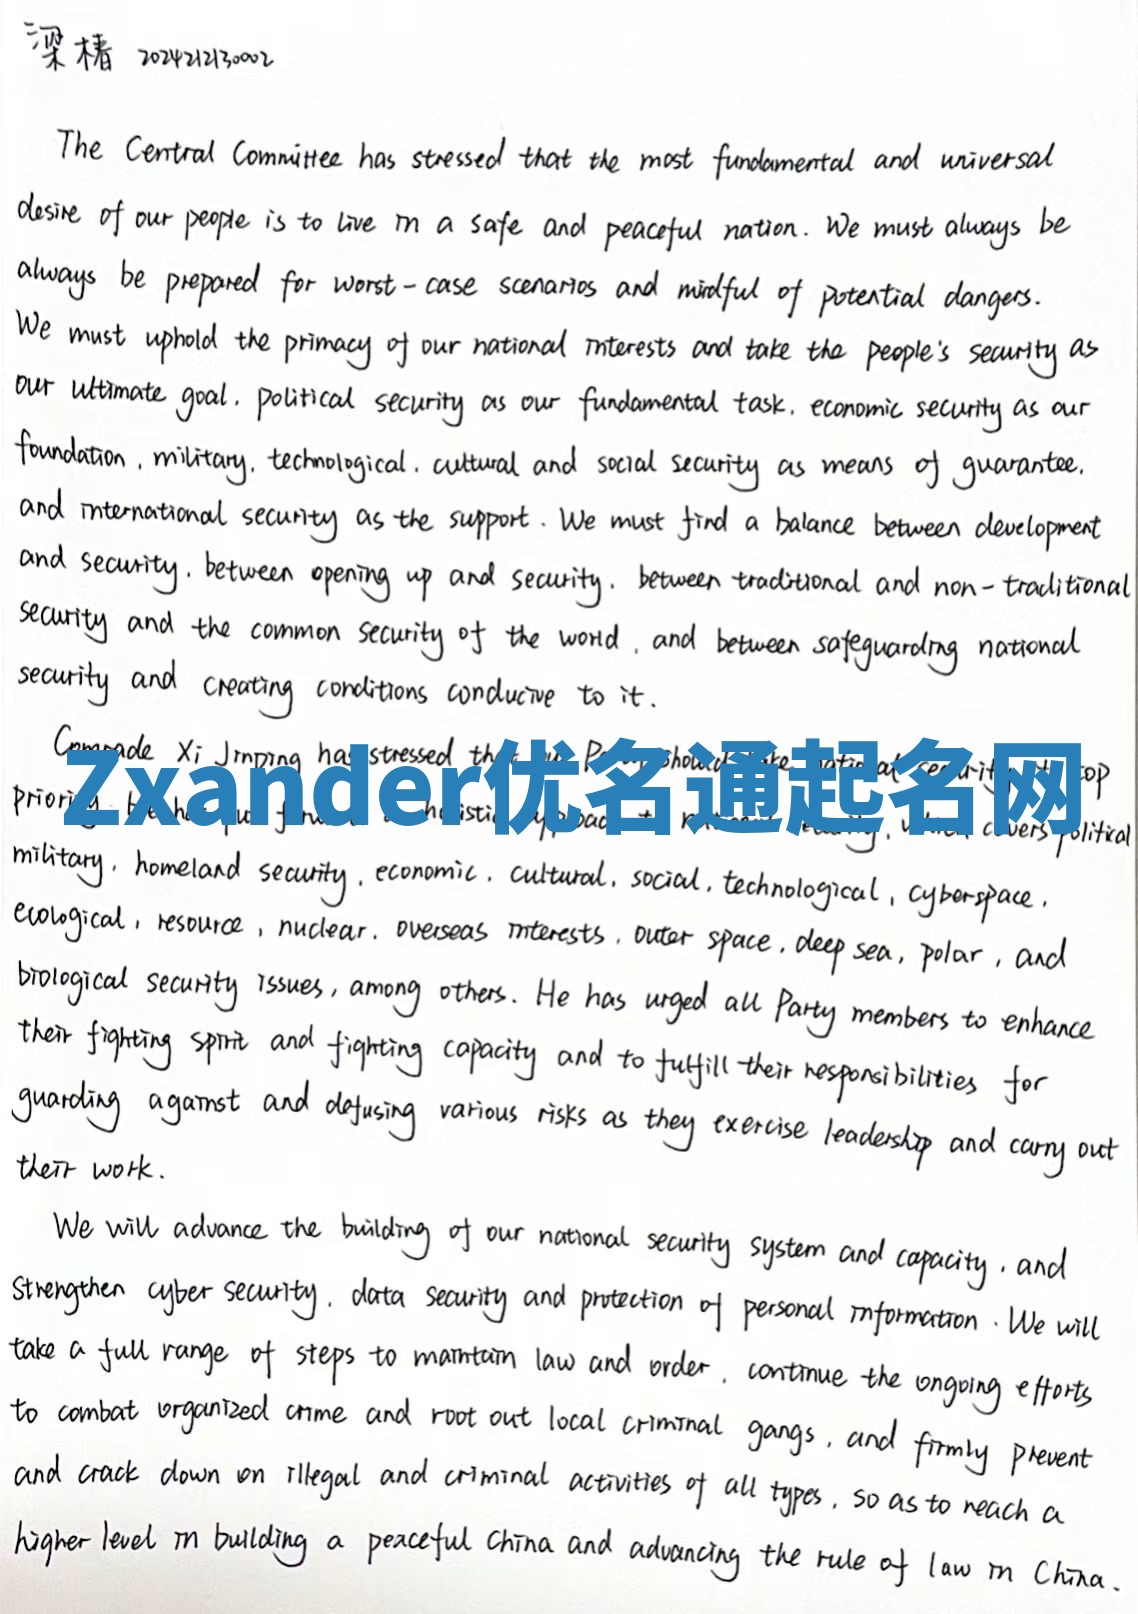 梁椿 2024212130002
The Central Committee has stressed that the most fundamental and universal
desire of our people is to live in a safe and peaceful nation. We must always be
always be prepared for worst-case scenarios and mindful of potential dangers.
We must uphold the primacy of our national interests and take the people's security as
our ultimate goal, political security as our fundamental task, economic security as our
foundation, military, technological, cultural and social security as means of guarantee,
and international security as the support. We must find a balance between development
and security, between opening up and security, between traditional and non-traditional
security and the common security of the world, and between safeguarding national
security and creating conditions conducive to it.
Comrade Xi Jinping has stressed top
Zxander优名通起名网
priority covers political
military, homeland security, economic, cultural, social, technological, cyberspace,
ecological, resource, nuclear, overseas interests, outer space, deep sea, polar, and
biological security issues, among others. He has urged all Party members to enhance
their fighting spirit and fighting capacity and to fulfill their responsibilities for
guarding against and defusing various risks as they exercise leadership and carry out
their work.
We will advance the building of our national security system and capacity, and
strengthen cyber security, data security and protection of personal information. We will
take a full range of steps to maintain law and order, continue the ongoing efforts
to combat organized crime and root out local criminal gangs, and firmly prevent
and crack down on illegal and criminal activities of all types, so as to reach a
higher level in building a peaceful China and advancing the rule of law in China.